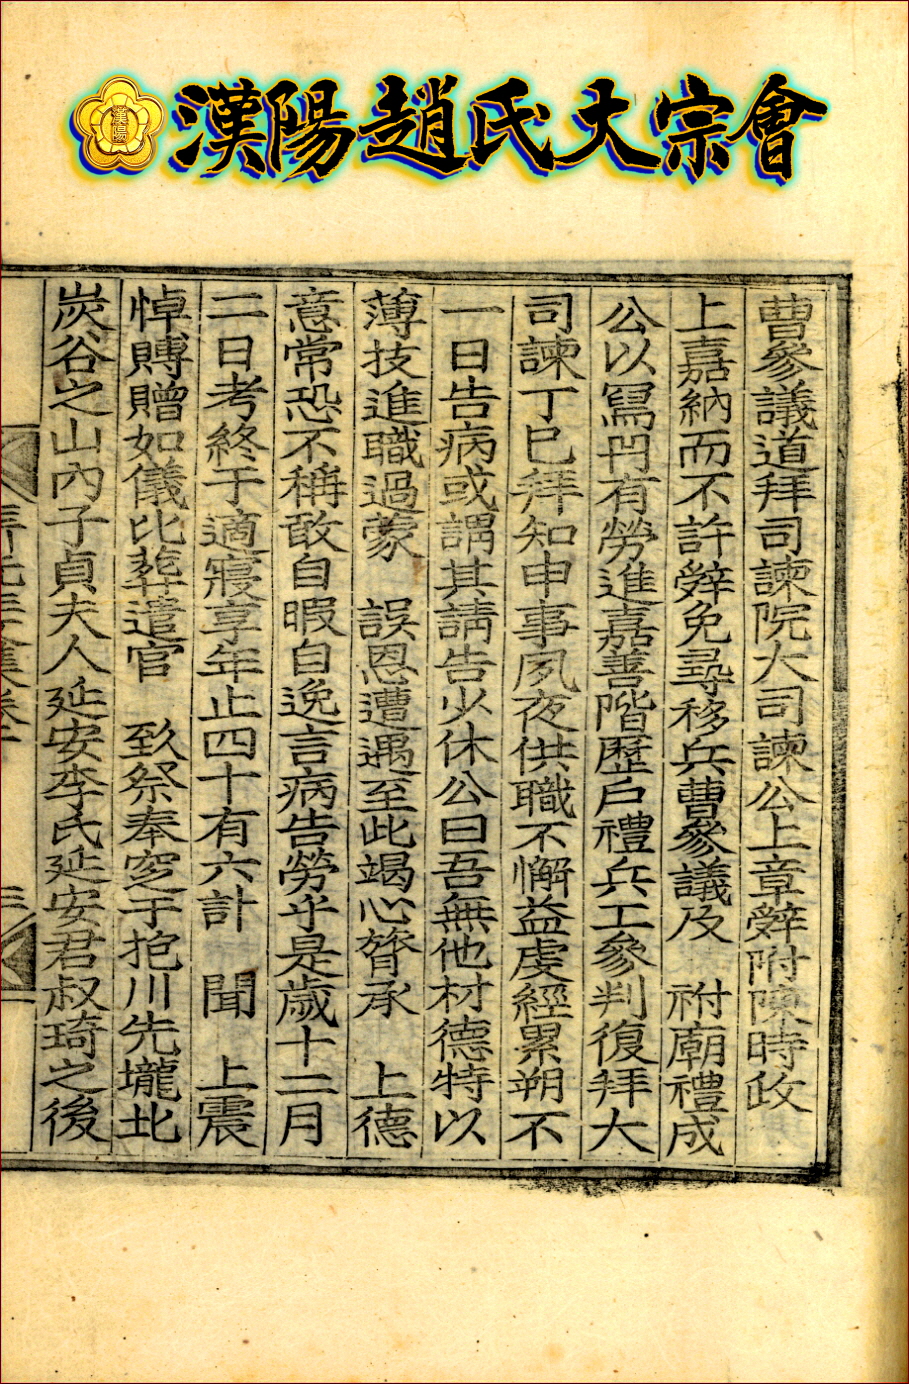 漢陽趙氏大宗會
漢陽
曹參議道拜司諫院大司諫公上章辤附陳時政
上嘉納而不許辤免尋移兵曹參議及 祔廟禮成
公以寫冊有勞進嘉善階歷戶禮兵工參判復拜大
司諫丁巳拜知申事夙夜供職不懈益虔經累朔不
一日告病或謂其請告少休公曰吾無他材德特以
薄技進職過蒙 誤恩遭遇至此竭心膂承 上德
意常恐不稱敢自暇自逸言病告勞乎是歲十二月
二日考終于適寢享年止四十有六計 聞 上震
悼賻贈如儀比葬遣官 致祭奉窆于抱川先壠北
炭谷之山內子貞夫人延安李氏延安君叔琦之後